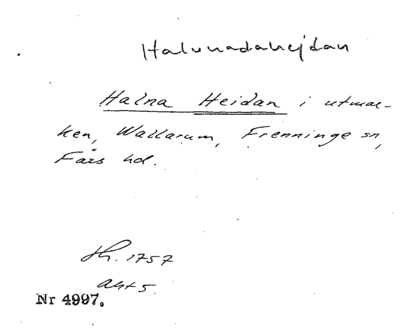 Halvnadahejdan
Halna Heidan i utmar-
ken, Wallarum, Frenninge sn,
Färs hd.
Sk. 1757
akt 5.
Nr 4997.